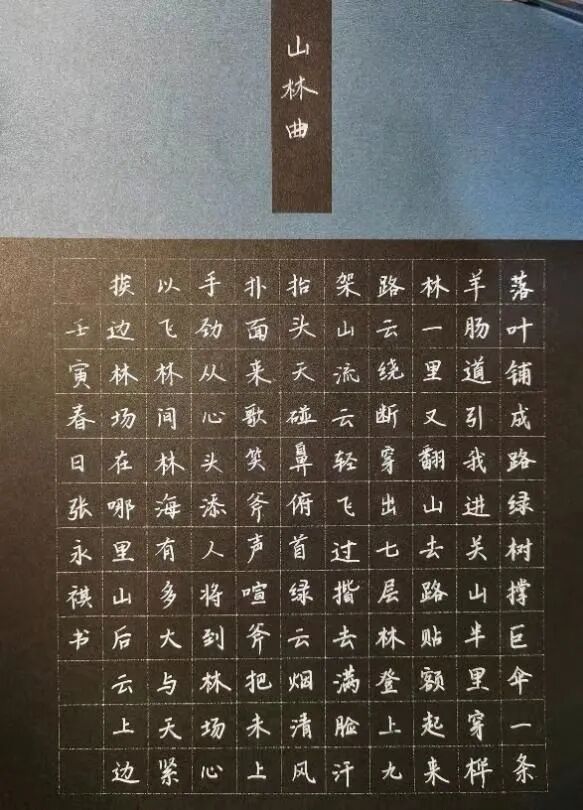 山林曲
落叶铺成路绿树撑巨伞一条
羊肠道引我进关山半里穿桦
林一里又翻山去路贴额起来
路云绕断穿出七层林登上九
架山流云轻飞过揩去满脸汗
抬头天碰鼻俯首绿云烟清风
扑面来歌笑斧声喧斧把未上
手劲从心头添人将到林场心
以飞林间林海有多大与天紧
挨边林场在哪里山后云上边
壬寅春日张永祺书